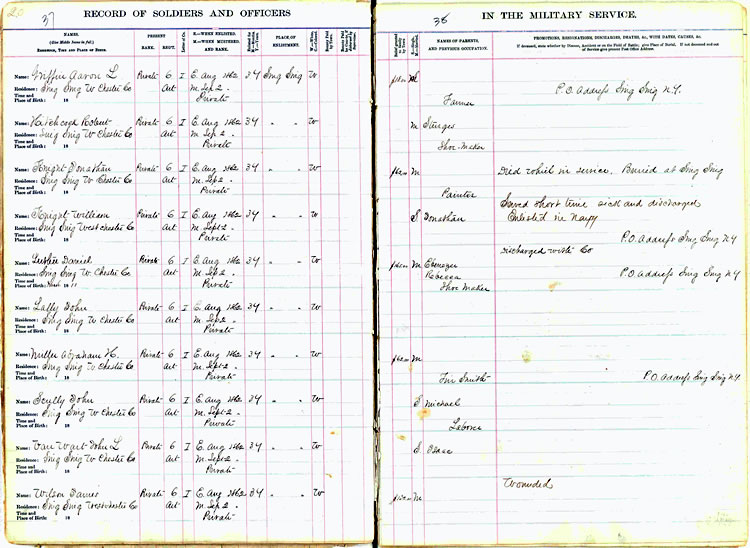 20
37
RECORD OF SOLDIERS AND OFFICERS
NAMES.
(Give Middle Name in full.)
RESIDENCE, TIME AND PLACE OF BIRTH.
PRESENT
RANK. REGT.
Letter of Co.
E.—WHEN ENLISTED.
M.—WHEN MUSTERED
AND RANK.
PLACE OF
ENLISTMENT.
Name: Griffin Aaron L Private 6 I E. Aug 1862 34 Sing Sing W
Residence: Sing Sing W Chester Co Art M. Sep 2 "
Time and
Place of Birth: 18 Private
Name: Hitchcock Robert Private 6 I E. Aug 1862 34 " " W
Residence: Sing Sing W Chester Co Art M. Sep 2 "
Time and
Place of Birth: 18 Private
Name: Knight Jonathan Private 6 I E. Aug 1862 34 " " W
Residence: Sing Sing W Chester Co Art M. Sept 2 "
Time and
Place of Birth: 18 Private
Name: Knight William Private 6 I E. Aug 1862 34 " " W
Residence: Sing Sing West Chester Co Art M. Sept 2 "
Time and
Place of Birth: 18 Private
Name: Daniel Private 6 I E. Aug 1862 34 " " W
Residence: Sing Sing W. Chester Co Art M. Sep 2 "
Time and
Place of Birth: 18 Private
Name: Laffy John Private 6 I E. Aug 1862 34 " " W
Residence: Sing Sing W Chester Co Art M. Sep 2 "
Time and
Place of Birth: 18 Private
Name: Abraham H. Private 6 I E. Aug 1862 34 " " W
Residence: Sing Sing W. Chester Co Art M. Sept 2 "
Time and
Place of Birth: 18 Private
Name: Scully John Private 6 I E. Aug 1862 34 " " W
Residence: Sing Sing W Chester Co Art M. Sept 2 "
Time and
Place of Birth: 18 Private
Name: Van Wart John L Private 6 I E. Aug 1862 34 " " W
Residence: Sing Sing W Chester Co Art M. Sep 2 "
Time and
Place of Birth: 18 Private
Name: Wilson James Private 6 I E. Aug 1862 34 " " W
Residence: Sing Sing Westchester Co Art M. Sep 2 "
Time and
Place of Birth: 18 Private
38
IN THE MILITARY SERVICE.
NAMES OF PARENTS,
AND PREVIOUS OCCUPATION.
PROMOTIONS, RESIGNATIONS, DISCHARGES, DEATHS, &c., WITH DATES, CAUSES, &c.
If deceased, state whether by Disease, Accident or on the Field of Battle; give Place of Burial. If not deceased and out
of Service give present Post Office Address.
M
P.O. Address Sing Sing N.Y.
Farmer
M Sturges
Shoe-Maker
M Died while in service. Buried at Sing Sing
Painter
Served short time sick and discharged
S Jonathan Enlisted in navy
P.O. Address Sing Sing N.Y
Discharged with Co
M Ebenezer
Rebecca P.O. Address Sing Sing N.Y
Shoe Maker
M
Tin Smith P.O. Address Sing Sing N.Y.
S Michael
Laborer
S Isaac
Wounded
M